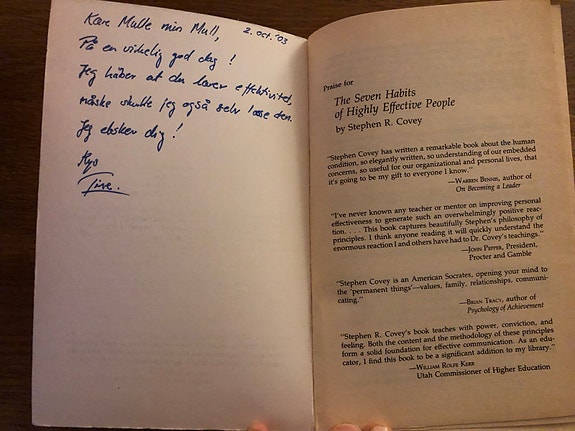 Kære Mulle min Mull,
2. oct. '03
På en virkelig god dag!
Jeg håber at du lærer effektivitet,
måske skulle jeg også selv læse den.
Jeg elsker dig!
Kys
Tine.
Praise for
The Seven Habits
of Highly Effective People
by Stephen R. Covey
"Stephen Covey has written a remarkable book about the human
condition, so elegantly written, so understanding of our embedded
concerns, so useful for our organizational and personal lives, that
it's going to be my gift to everyone I know."
—Warren Bennis, author of
On Becoming a Leader
"I've never known any teacher or mentor on improving personal
effectiveness to generate such an overwhelmingly positive reac-
tion. . . . This book captures beautifully Stephen's philosophy of
principles. I think anyone reading it will quickly understand the
enormous reaction I and others have had to Dr. Covey's teachings."
—John Pepper, President,
Procter and Gamble
"Stephen Covey is an American Socrates, opening your mind to
the 'permanent things'—values, family, relationships, communi-
cating."
—Brian Tracy, author of
Psychology of Achievement
"Stephen R. Covey's book teaches with power, conviction, and
feeling. Both the content and the methodology of these principles
form a solid foundation for effective communication. As an edu-
cator, I find this book to be a significant addition to my library."
—William Rolfe Kerr
Utah Commissioner of Higher Education